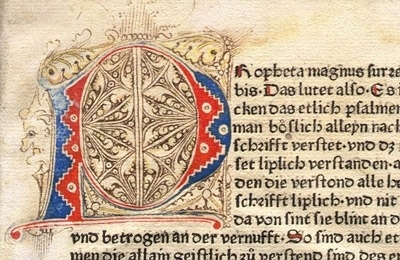 Ropheta magnus surre
bis · Das lutet also · Es i
cken das etlich psalmen
man böslich alleyn nach
schrifft verstet · vnd dz
set liplich verstanden · a
den die verstond alle h
schrifft liplich · vnd nit
da von sint sie blint an d
vnd betrogen an der vernufft · So sind auch et
men die allain geistlich zů verstend sind des er